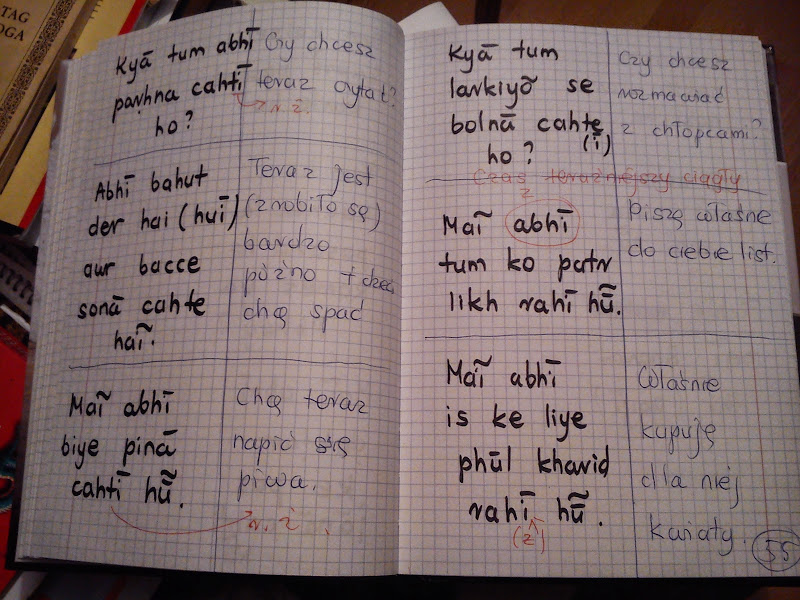 TAG
OGA
Kyā tum abhī
paṛhna cahtī
ho?
Czy chcesz
teraz czytać?
r. ż.
Abhi bahut
der hai (huī)
aur bacce
sonā cahte
haĩ.
Teraz jest
(zrobiło się)
bardzo
późno i dzieci
chcą spać
Maĩ abhī
biye pīnā
cahtī hū̃.
Chcę teraz
napić się
piwa.
r. ż.
Kyā tum
laṛkiyõ se
bolnā cahte
(i)
ho?
Czy chcesz
rozmawiać
z chłopcami?
Czas teraźniejszy ciągły
Maĩ abhī
tum ko patr
likh rahī hū̃.
Piszę właśnie
do ciebie list.
Maĩ abhī
is ke liye
phūl kharid
rahī hū̃.
(ż)
Właśnie
kupuję
dla niej
kwiaty.
55